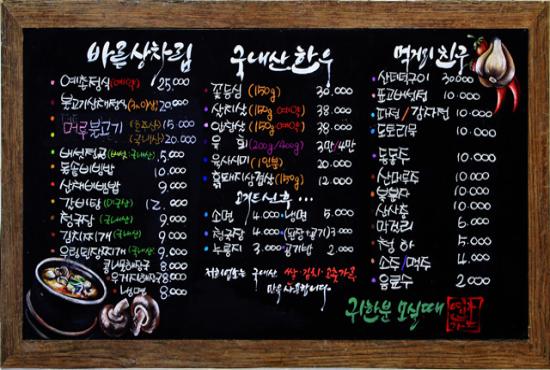 바름상차림
예촌정식 (예약) 25.000
불고기산채정식 (2인이상) 20.000
머루불고기 (호주산) 15.000
(국내산) 20.000
버섯전골 (버섯:국내산) 5.000
돌솥비빔밥 10.000
산채비빔밥 9.000
갈비탕 (미국산) 12.000
청국장 (국내산) 9.000
김치찌개 (국내산) 9.000
우렁된장찌개 (국내산) 9.000
8.000
우거지해장국 8.000
냉면 8.000
국내산 한우
꽃등심 (150g) 30.000
살치살 (150g) 예약 38.000
안창살 (150g) 예약 38.000
육회 (200g/400g) 3만/4만
육사시미 (1인분) 20.000
흙돼지삼겹살 (150g) 12.000
고기드신후...
소면 4.000
냉면 5.000
청국장 4.000
(된장)공기 3.000
누룽지 3.000
공기밥 2.000
저희업소는 국내산 쌀·김치·고춧가루
만을 사용합니다.
먹거리 친구
산더덕구이 30.000
표고버섯전 10.000
파전/감자전 10.000
도토리묵 10.000
동동주 10.000
산머루주 10.000
10.000
10.000
막걸리 6.000
청하 5.000
소주/맥주 4.000
음료수 2.000
귀한분 모실때